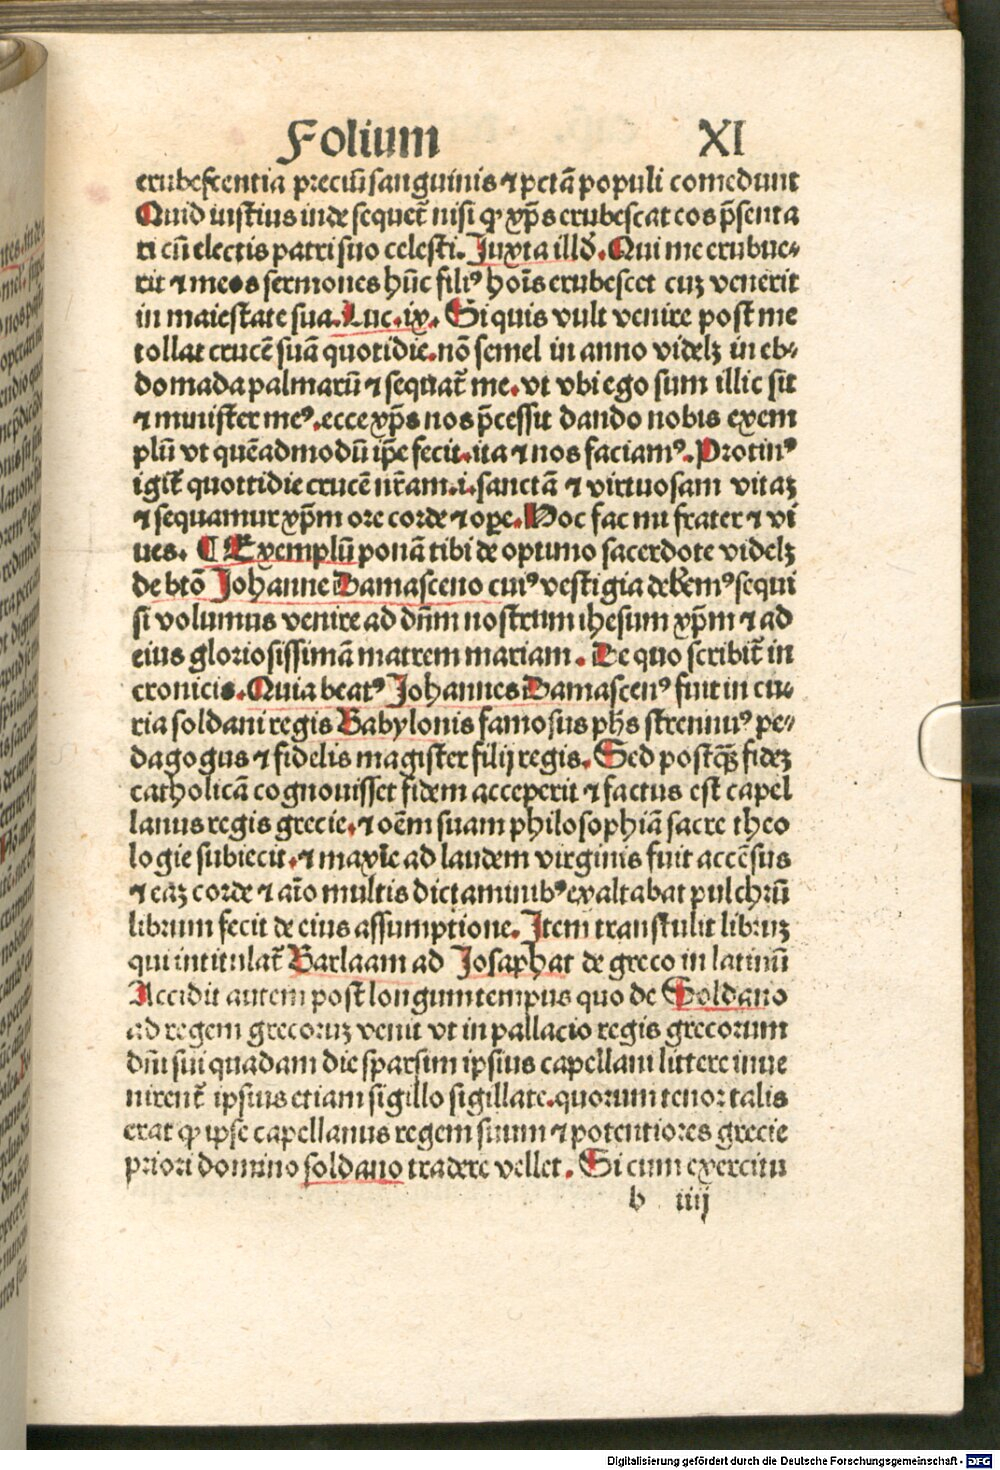 Folium XI
erubescentia preciū sanguinis ⁊ pctā populi comedunt
Quid iustius inde sequet̄ nisi ꝙ xp̄s erubescat eos p̄senta
ri cū electis patri suo celesti. Juxta illđ. Qui me erubue⸗
rit ⁊ meos sermones hūc filiꝰ hoīs erubescet cuꝫ venerit
in maiestate sua. Luc. ix. Si quis vult venire post me
tollat crucē suā quotidie. nō semel in anno videlꝫ in eb⸗
domada palmarū ⁊ sequat̄ me. vt vbi ego sum illic sit
⁊ minister meꝰ. ecce xp̄s nos p̄cessit dando nobis exem
plū vt quēadmodū ip̄e fecit. ita ⁊ nos faciamꝰ. Protinꝰ
igit̄ quottidie crucē nr̄am .i. sanctā ⁊ virtuosam vitaꝫ
⁊ sequamur xp̄m ore corde ⁊ oꝑe. Hoc fac mi frater ⁊ vi
ues. ¶ Exemplū ponā tibi de optimo sacerdote videlꝫ
de btō Johanne Damasceno cuiꝰ vestigia debemꝰ sequi
si volumus venire ad dn̄m nostrum ihesum xp̄m ⁊ ad
eius gloriosissimā matrem mariam. De quo scribit̄ in
cronicis. Quia beatꝰ Johannes Damascenꝰ fuit in cu⸗
ria soldani regis Babylonis famosus ph̄s strennuꝰ pe⸗
dagogus ⁊ fidelis magister filij regis. Sed postꝙꝫ fideꝫ
catholicā cognouisset fidem acceperit ⁊ factus est capel
lanus regis grecie. ⁊ oēm suam philosophiā sacre theo
logie subiecit. ⁊ maxīe ad laudem virginis fuit accēsus
⁊ eāꝫ corde ⁊ aīo multis dictaminibꝰ exaltabat pulchrū
librum fecit de eius assumptione. Item transtulit libruꝫ
qui intitulat̄ Barlaam ad Josaphat de greco in latinū
Accidit autem post longum tempus quo de Soldano
ad regem grecoruꝫ venit vt in pallacio regis grecorum
dn̄i sui quadam die sparsim ipsius capellani littere inue
nirent̄ ipsius etiam sigillo sigillate. quorum tenor talis
erat ꝙ ipse capellanus regem suum ⁊ potentiores grecie
priori domino soldano tradere vellet. Si cum exercitu
b iiij
Digitalisierung gefördert durch die Deutsche Forschungsgemeinschaft - DFG